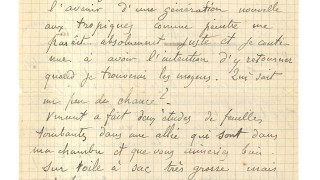 l'avenir d'une génération nouvelle
aux tropiques comme peintre me
parait absolument juste et je conti-
nue à avoir l'intention d'y retourner
quand je trouverai les moyens. Qui sait
un peu de chance?-
Vincent a fait deux études de feuilles
tombantes dans une allée que sont dans
ma chambre et que vous aimeriez bien
sur toile à sac très grosse mais